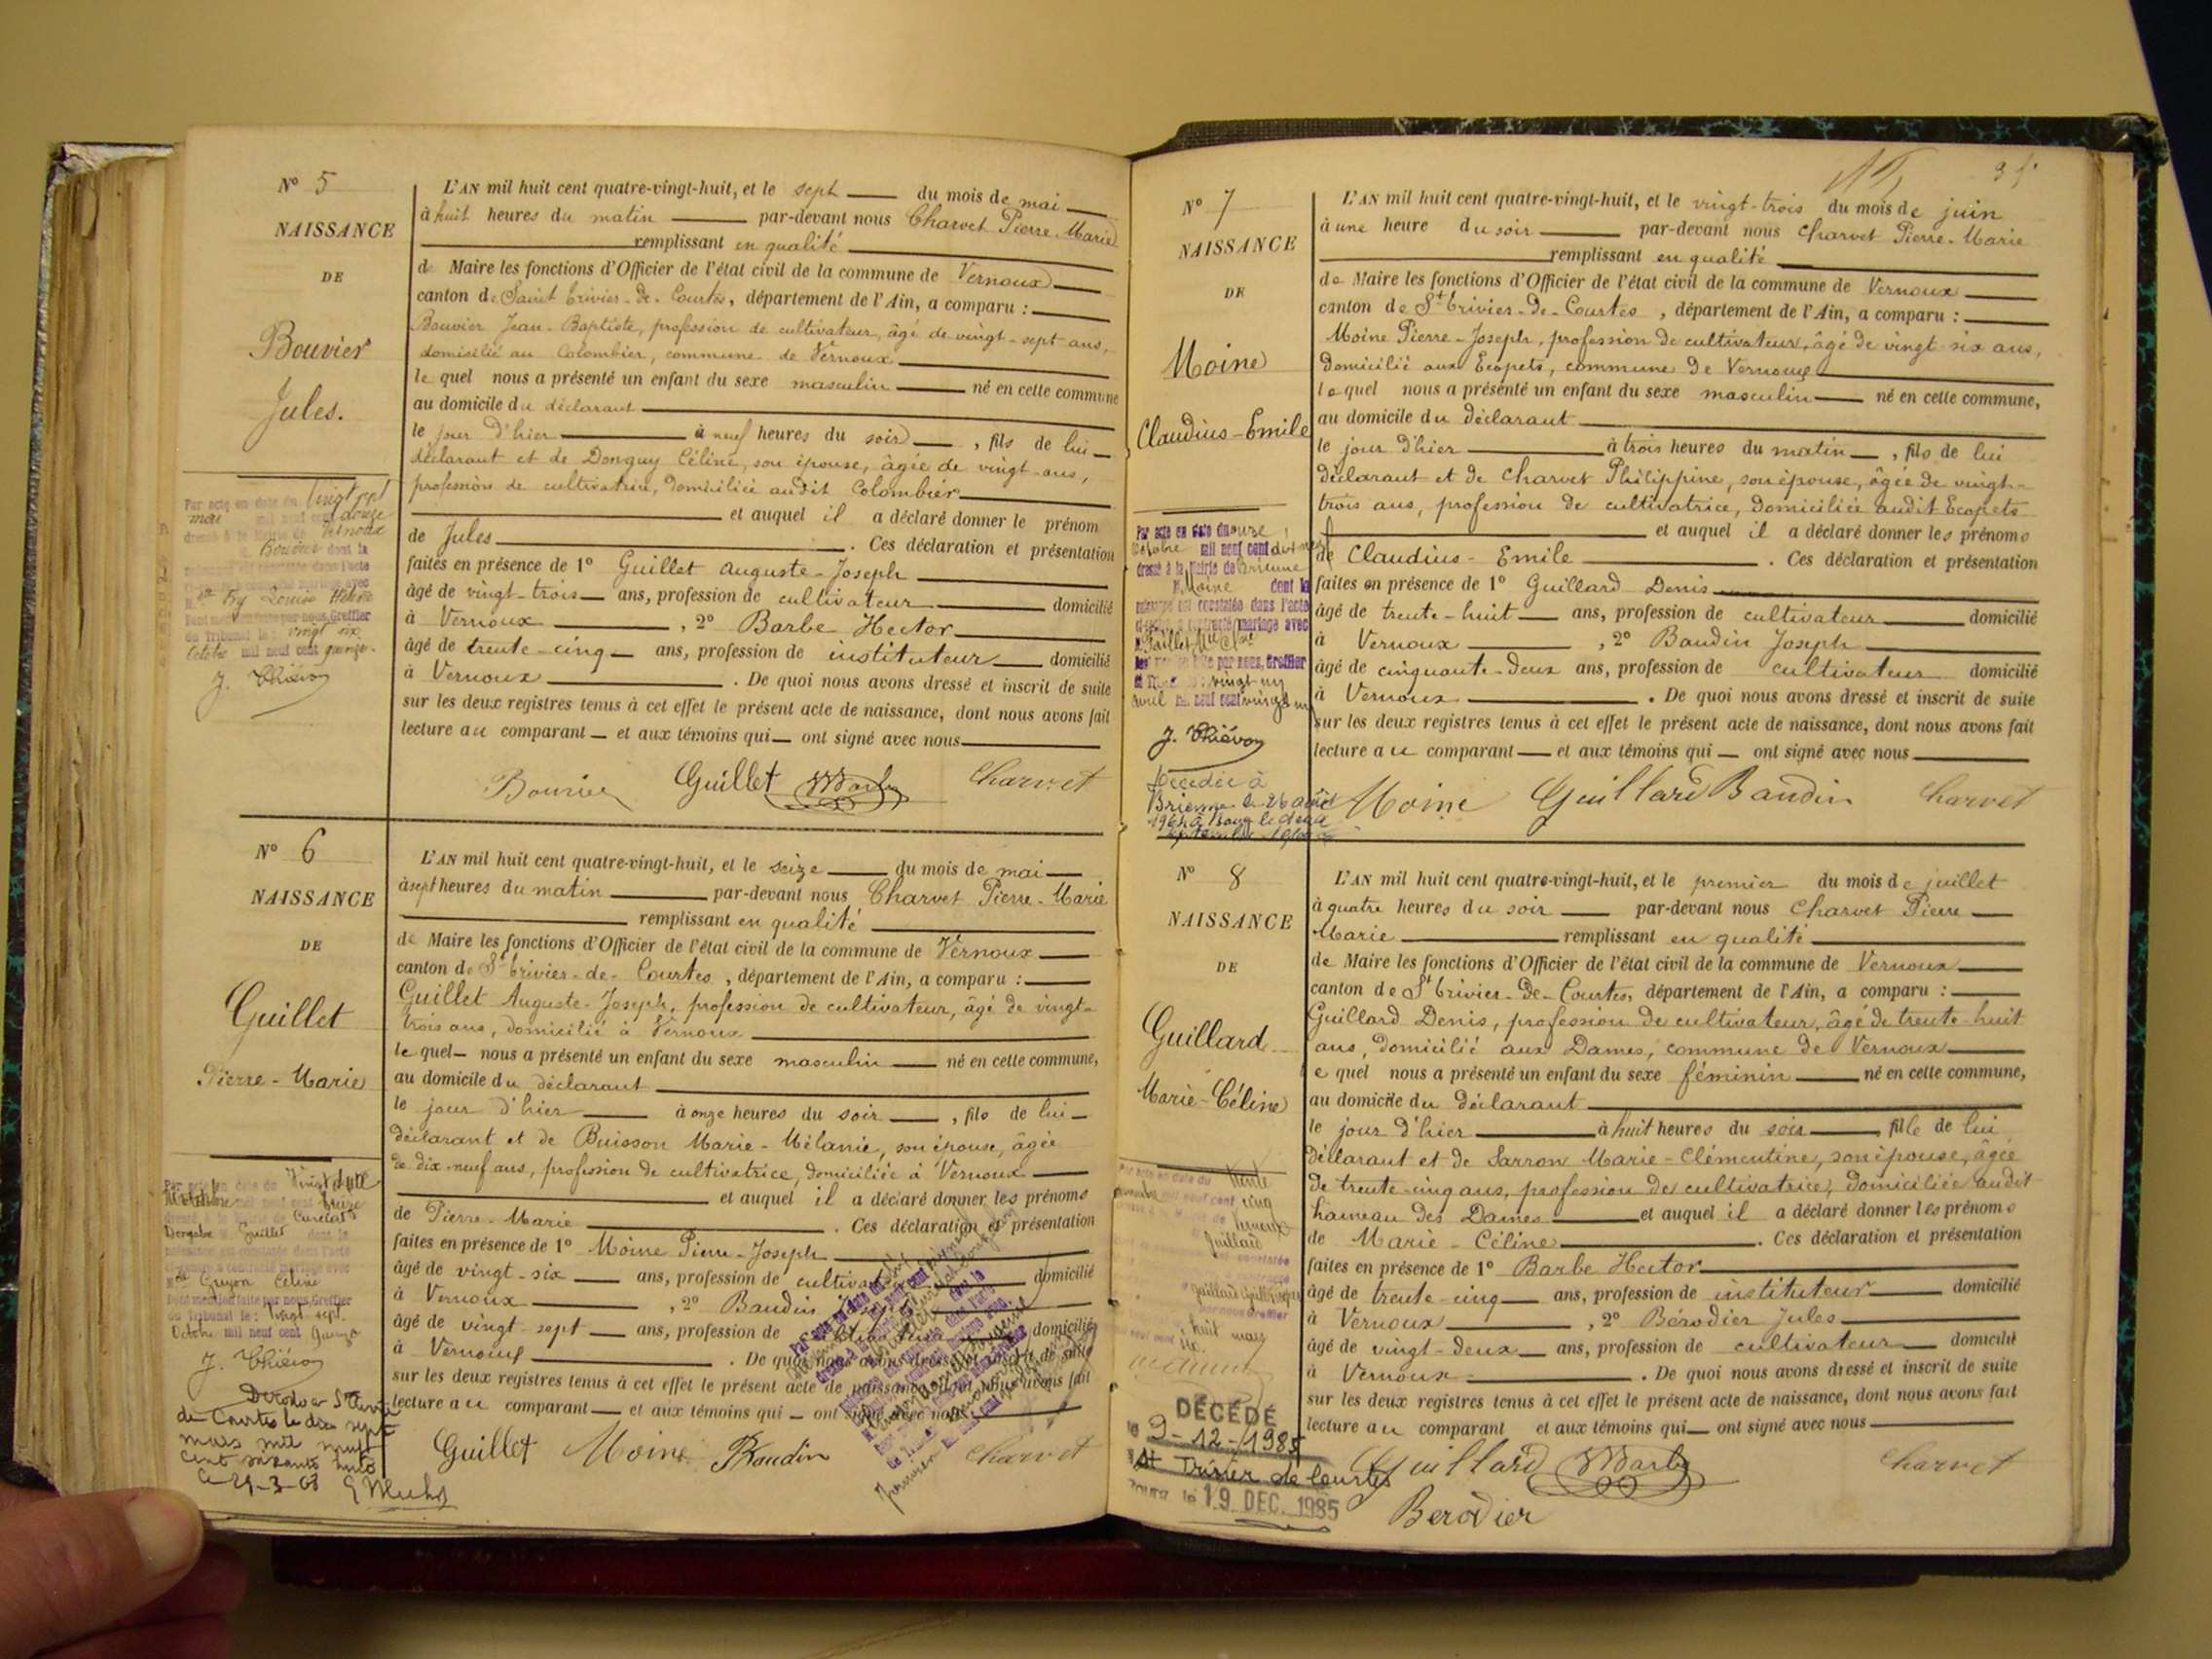 N° 5
NAISSANCE
DE
Bouvier
Jules.
L'AN mil huit cent quatre-vingt-huit, et le sept du mois de mai
à huit heures du matin par-devant nous Charvet Pierre-Marie
remplissant en qualité
de Maire les fonctions d'Officier de l'état civil de la commune de Vernoux
canton de Saint Trivier-de-Courtes, département de l'Ain, a comparu :
Bouvier Jean-Baptiste, profession de cultivateur, âgé de vingt-sept ans,
domicilié au Colombier, commune de Vernoux
lequel nous a présenté un enfant du sexe masculin né en cette commune
au domicile du déclarant
le jour d'hier à neuf heures du soir, fils de lui
déclarant et de Donguy Céline, son épouse, âgée de vingt-ans,
profession de cultivatrice, domiciliée audit Colombier
et auquel il a déclaré donner le prénom
de Jules. Ces déclaration et présentation
faites en présence de 1° Guillet Auguste-Joseph
âgé de vingt-trois ans, profession de cultivateur domicilié
à Vernoux, 2° Barbe Hector
âgé de trente-cinq ans, profession de instituteur domicilié
à Vernoux. De quoi nous avons dressé et inscrit de suite
sur les deux registres tenus à cet effet le présent acte de naissance, dont nous avons fait
lecture au comparant et aux témoins qui ont signé avec nous
Bouvier Guillet HBarbe Charvet
Par acte en date du vingt sept
mai mil neuf cent douze
dressé à la Mairie de Vernoux
Bouvier dont la
naissance est constatée dans l'acte
ci-contre a contracté mariage avec
Louise
Dont mention faite par nous, Greffier
du Tribunal le: vingt six
Octobre mil neuf cent quinze.
J. Thiévon
N° 6
NAISSANCE
DE
Guillet
Pierre-Marie
L'AN mil huit cent quatre-vingt-huit, et le seize du mois de mai
à sept heures du matin par-devant nous Charvet Pierre-Marie
remplissant en qualité
de Maire les fonctions d'Officier de l'état civil de la commune de Vernoux
canton de St Trivier-de-Courtes, département de l'Ain, a comparu :
Guillet Auguste-Joseph, profession de cultivateur, âgé de vingt-
trois ans, domicilié à Vernoux
lequel nous a présenté un enfant du sexe masculin né en cette commune,
au domicile du déclarant
le jour d'hier à onze heures du soir, fils de lui
déclarant et de Buisson Marie-Mélanie, son épouse, âgée
de dix-neuf ans, profession de cultivatrice, domiciliée à Vernoux
et auquel il a déclaré donner les prénoms
de Pierre-Marie. Ces déclaration et présentation
faites en présence de 1° Moine Pierre-Joseph
âgé de vingt-six ans, profession de cultivateur domicilié
à Vernoux, 2° Baudin
âgé de vingt-sept ans, profession de cultivateur domicilié
à Vernoux. De quoi nous avons dressé et inscrit de suite
sur les deux registres tenus à cet effet le présent acte de naissance, dont nous avons fait
lecture au comparant et aux témoins qui ont signé avec nous
Guillet Moine Baudin Charvet
Par acte en date du vingt
mil neuf cent treize
dressé à la Mairie de Curciat
Dongalon Guillet dont la
naissance est constatée dans l'acte
ci-contre a contracté mariage avec
Guyon Céline
Dont mention faite par nous, Greffier
du Tribunal le: vingt-sept
Octobre mil neuf cent quinze
J. Thiévon
Décédé à St Trivier
de Courtes le dix sept
mars mil neuf
cent soixante huit
Le 29-3-68
N° 7
NAISSANCE
DE
Moine
Claudius-Emile
L'AN mil huit cent quatre-vingt-huit, et le vingt-trois du mois de juin
à une heure du soir par-devant nous Charvet Pierre-Marie
remplissant en qualité
de Maire les fonctions d'Officier de l'état civil de la commune de Vernoux
canton de St Trivier-de-Courtes, département de l'Ain, a comparu :
Moine Pierre-Joseph, profession de cultivateur, âgé de vingt-six ans,
domicilié aux Ecopets, commune de Vernoux
lequel nous a présenté un enfant du sexe masculin né en cette commune,
au domicile du déclarant
le jour d'hier à trois heures du matin, fils de lui
déclarant et de Charvet Philippine, son épouse, âgée de vingt-
trois ans, profession de cultivatrice, domiciliée audit Ecopets
et auquel il a déclaré donner les prénoms
de Claudius-Emile. Ces déclaration et présentation
faites en présence de 1° Guillard Denis
âgé de trente-huit ans, profession de cultivateur domicilié
à Vernoux, 2° Baudin Joseph
âgé de cinquante-deux ans, profession de cultivateur domicilié
à Vernoux. De quoi nous avons dressé et inscrit de suite
sur les deux registres tenus à cet effet le présent acte de naissance, dont nous avons fait
lecture au comparant et aux témoins qui ont signé avec nous
Moine Guillard Baudin Charvet
Par acte en date du onze
Octobre mil neuf cent dix neuf
dressé à la Mairie de Brienne
Moine dont la
naissance est constatée dans l'acte
ci-contre a contracté mariage avec
par nous, Greffier
vingt un
avril mil neuf cent vingt un
J. Thiévon
Décédé à
Brienne le 26 août
N° 8
NAISSANCE
DE
Guillard
Marie-Céline
L'AN mil huit cent quatre-vingt-huit, et le premier du mois de juillet
à quatre heures du soir par-devant nous Charvet Pierre
Marie remplissant en qualité
de Maire les fonctions d'Officier de l'état civil de la commune de Vernoux
canton de St Trivier-de-Courtes, département de l'Ain, a comparu :
Guillard Denis, profession de cultivateur, âgé de trente-huit
ans, domicilié aux Dames, commune de Vernoux
lequel nous a présenté un enfant du sexe féminin né en cette commune,
au domicile du déclarant
le jour d'hier à huit heures du soir, fille de lui
déclarant et de Sarron Marie-Clémentine, son épouse, âgée
de trente-cinq ans, profession de cultivatrice, domiciliée audit
hameau des Dames et auquel il a déclaré donner les prénoms
de Marie-Céline. Ces déclaration et présentation
faites en présence de 1° Barbe Hector
âgé de trente-cinq ans, profession de instituteur domicilié
à Vernoux, 2° Bérodier Jules
âgé de vingt-deux ans, profession de cultivateur domicilié
à Vernoux. De quoi nous avons dressé et inscrit de suite
sur les deux registres tenus à cet effet le présent acte de naissance, dont nous avons fait
lecture au comparant et aux témoins qui ont signé avec nous
Guillard HBarbe Charvet
Berodier
DÉCÉDÉ
le 9-12-1985
St Trivier de Courtes
le 19 DEC. 1985